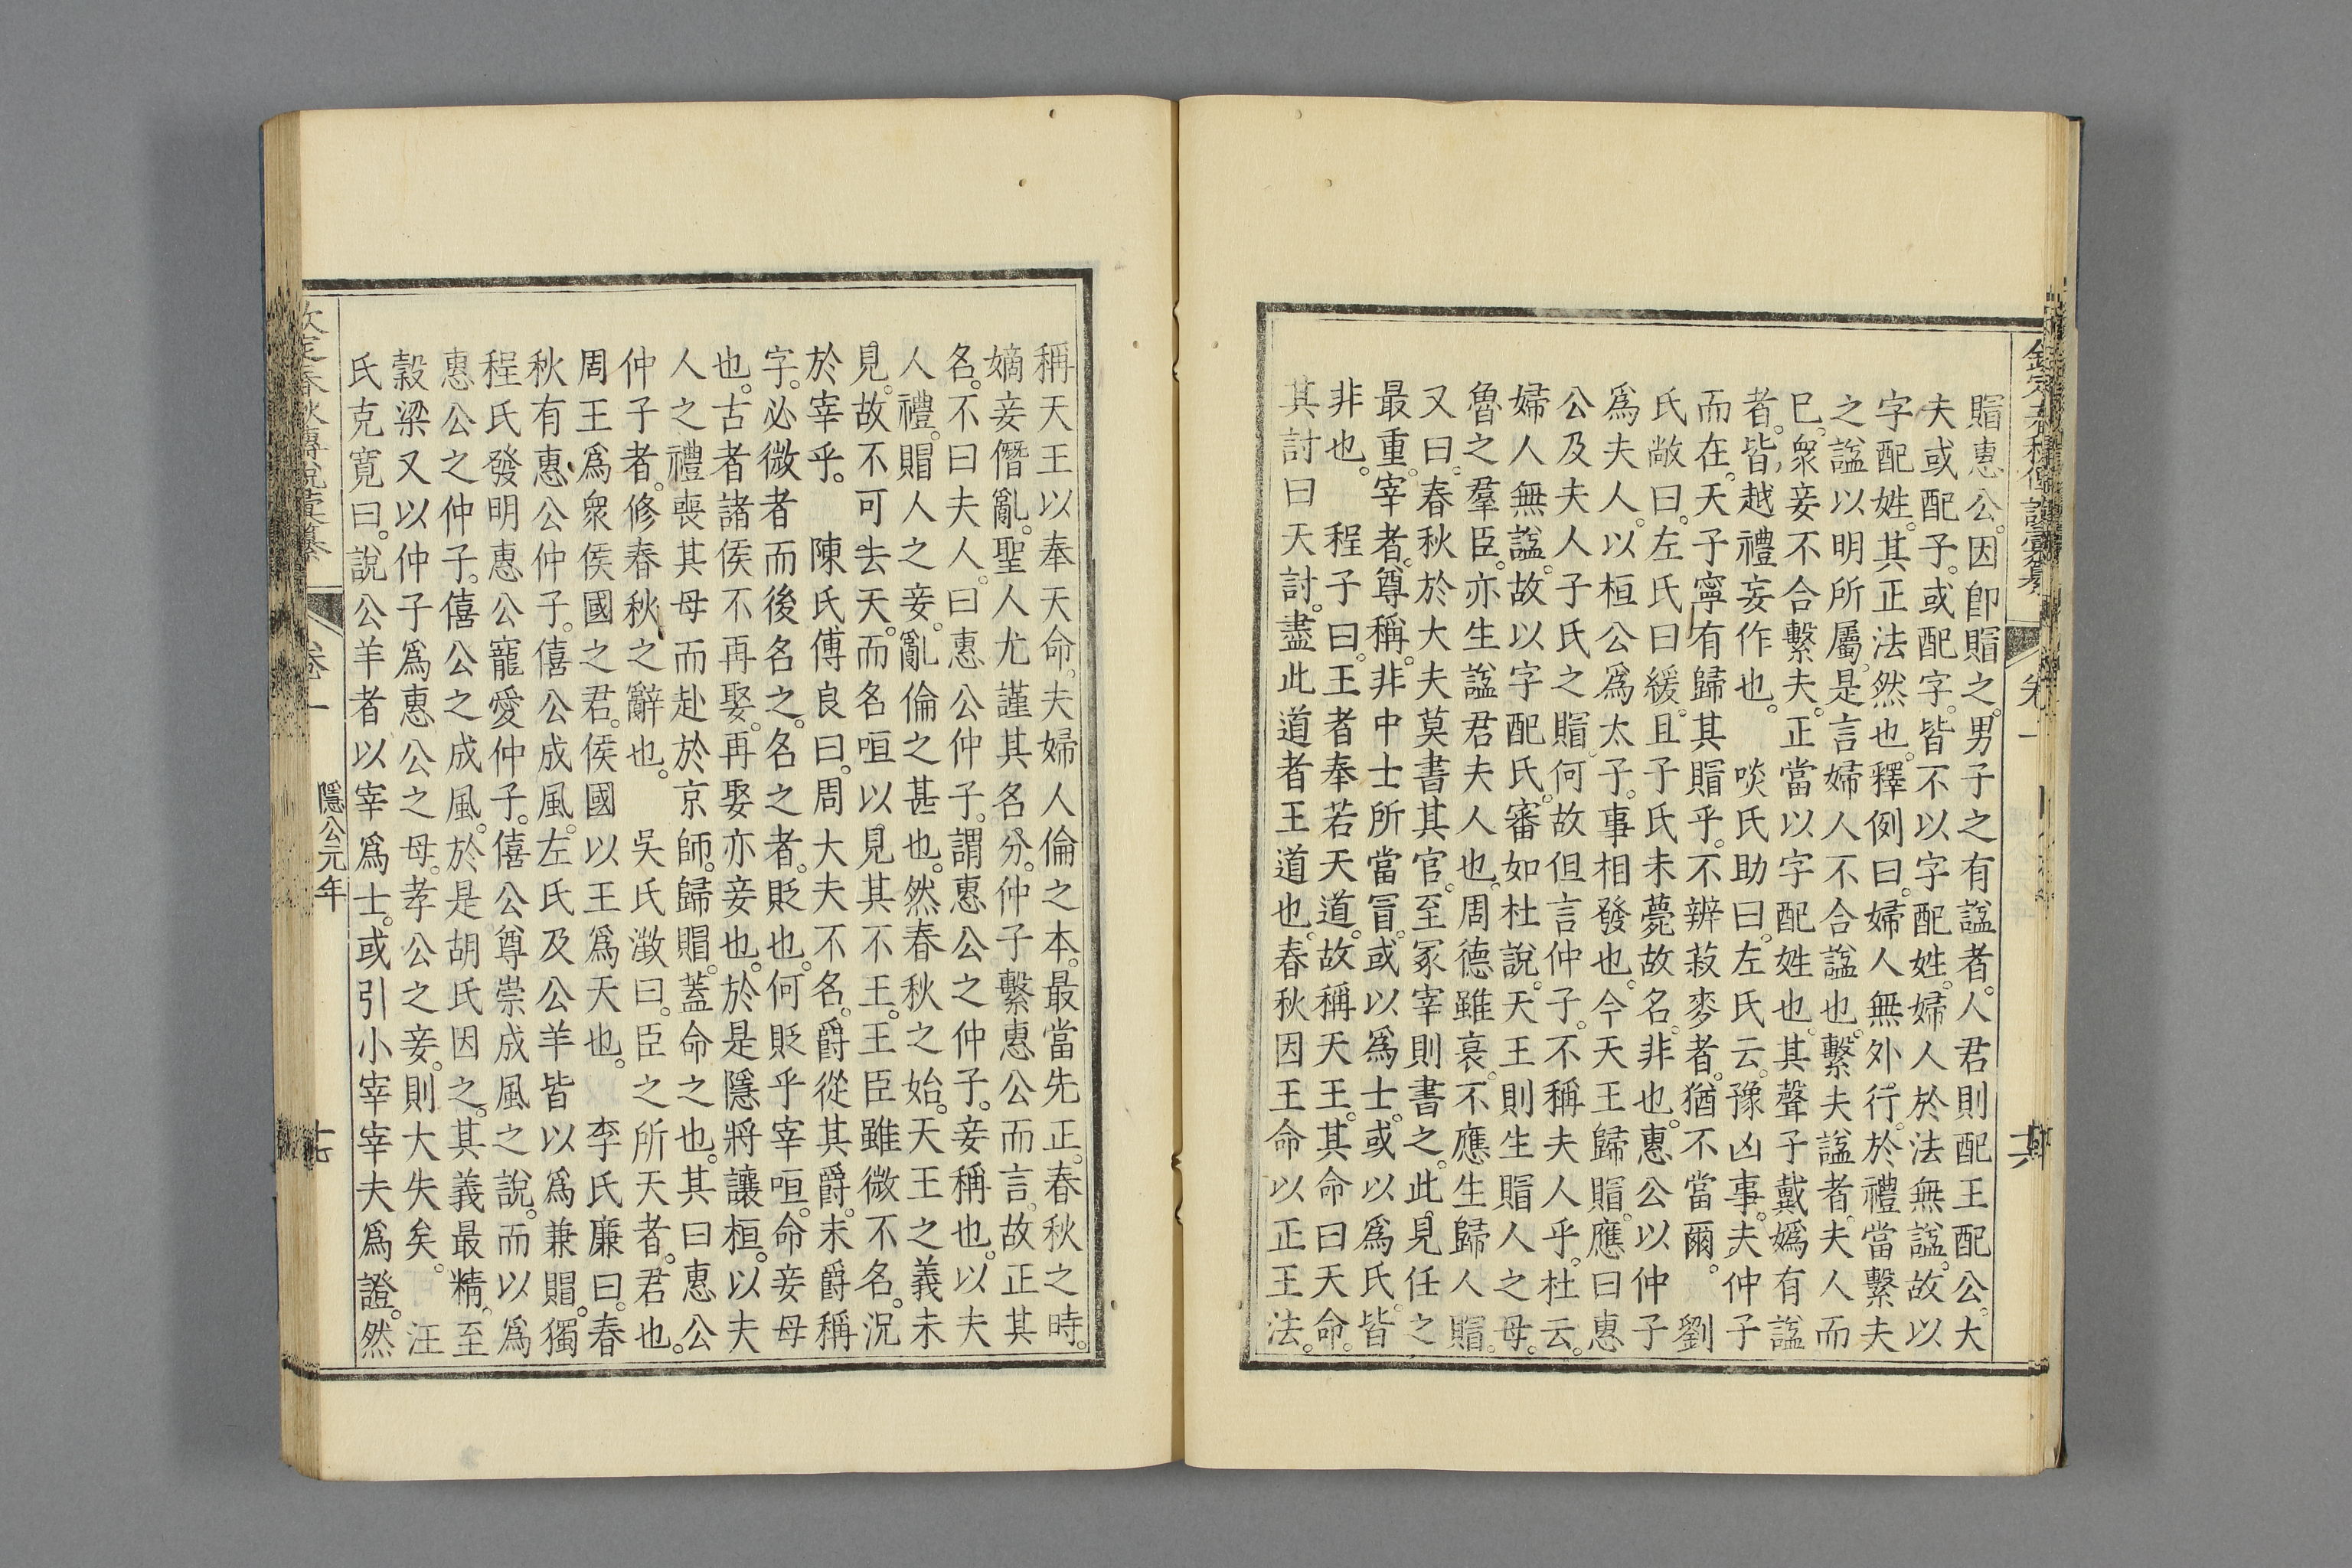 賵惠公。因卽賵之。男子之有諡者。人君則配王配公。大
夫或配子。或配字。皆不以字配姓。婦人於法無諡。故以
字配姓。其正法然也。釋例曰。婦人無外行。於禮當繫夫
之諡以明所屬。是言婦人不合諡也。繫夫諡者。夫人而
巳。衆妾不合繫夫。正當以字配姓也。其聲子戴嬀有諡
者。皆越禮妄作也。 啖氏助曰。左氏云。豫凶事。夫仲子
而在。天子寧有歸其賵乎。不辨菽麥者。猶不當爾。 劉
氏敞曰。左氏曰緩。且子氏未薨故名。非也。惠公以仲子
爲夫人。以桓公爲太子。事相發也。今天王歸賵。應曰惠
公及夫人子氏之賵。何故但言仲子。不稱夫人乎。杜云。
婦人無諡。故以字配氏。審如杜說。天王則生賵人之母。
魯之羣臣。亦生諡君夫人也。周德雖衰。不應生歸人賵。
又曰。春秋於大夫莫書其官。至冢宰則書之。此見任之
最重。宰者。尊稱。非中士所當冒。或以爲士。或以爲氏。皆
非也。 程子曰。王者奉若天道。故稱天王。其命曰天命。
其討曰天討。盡此道者王道也。春秋因王命以正王法。
稱天王以奉天命。夫婦人倫之本。最當先正。春秋之時。
嫡妾僭亂。聖人尤謹其名分。仲子繫惠公而言。故正其
名。不曰夫人。曰惠公仲子。謂惠公之仲子。妾稱也。以夫
人禮。賵人之妾。亂倫之甚也。然春秋之始。天王之義未
見。故不可去天。而名咺以見其不王。王臣雖微不名。況
於宰乎。 陳氏傅良曰。周大夫不名。爵從其爵。未爵稱
字。必微者而後名之。名之者。貶也。何貶乎宰咺。命妾母
也。古者諸侯不再娶。再娶亦妾也。於是隱將讓桓。以夫
人之禮喪其母而赴於京師。歸賵。蓋命之也。其曰惠公
仲子者。修春秋之辭也。 吳氏澂曰。臣之所天者。君也。
周王爲衆侯國之君。侯國以王爲天也。 李氏廉曰。春
秋有惠公仲子。僖公成風。左氏及公羊皆以爲兼賵。獨
程氏發明惠公寵愛仲子。僖公尊崇成風之說。而以爲
惠公之仲子。僖公之成風。於是胡氏因之。其義最精。至
穀梁又以仲子爲惠公之母。孝公之妾。則大失矣。 汪
氏克寬曰。說公羊者以宰爲士。或引小宰宰夫爲證。然
隱公元年